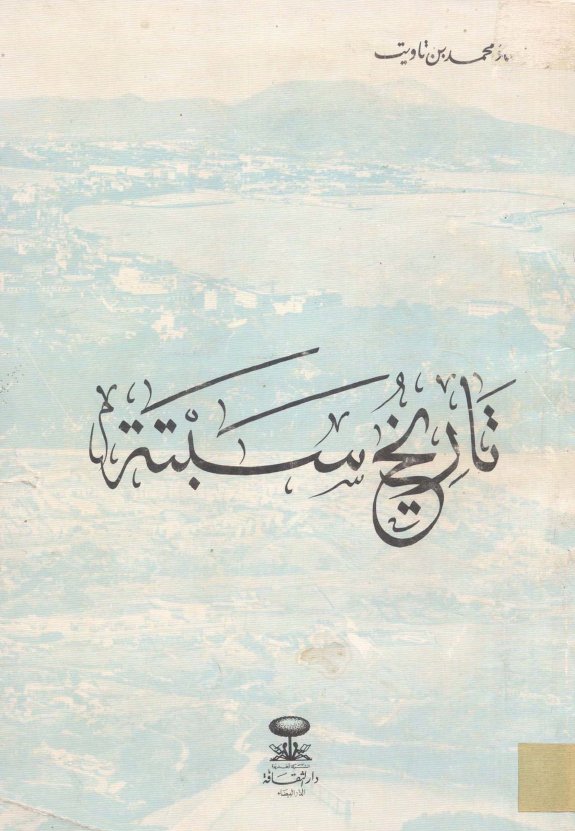 محمد بن تاويت
تَارِيخُ سَبْتَة
دار الثقافة
الدار البيضاء